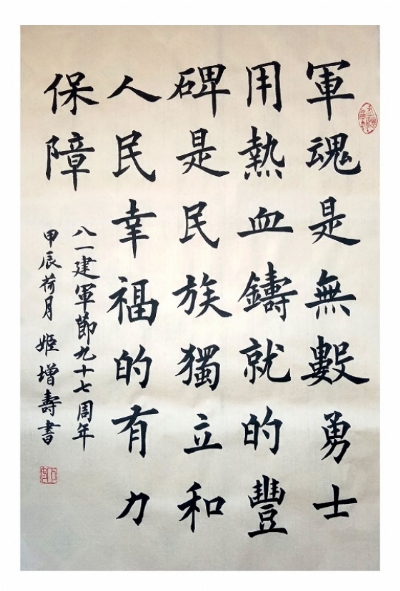 軍魂是無數勇士
用熱血鑄就的豐
碑是民族獨立和
人民幸福的有力
保障
八一建軍節九十七周年
甲辰荷月 姬增壽書